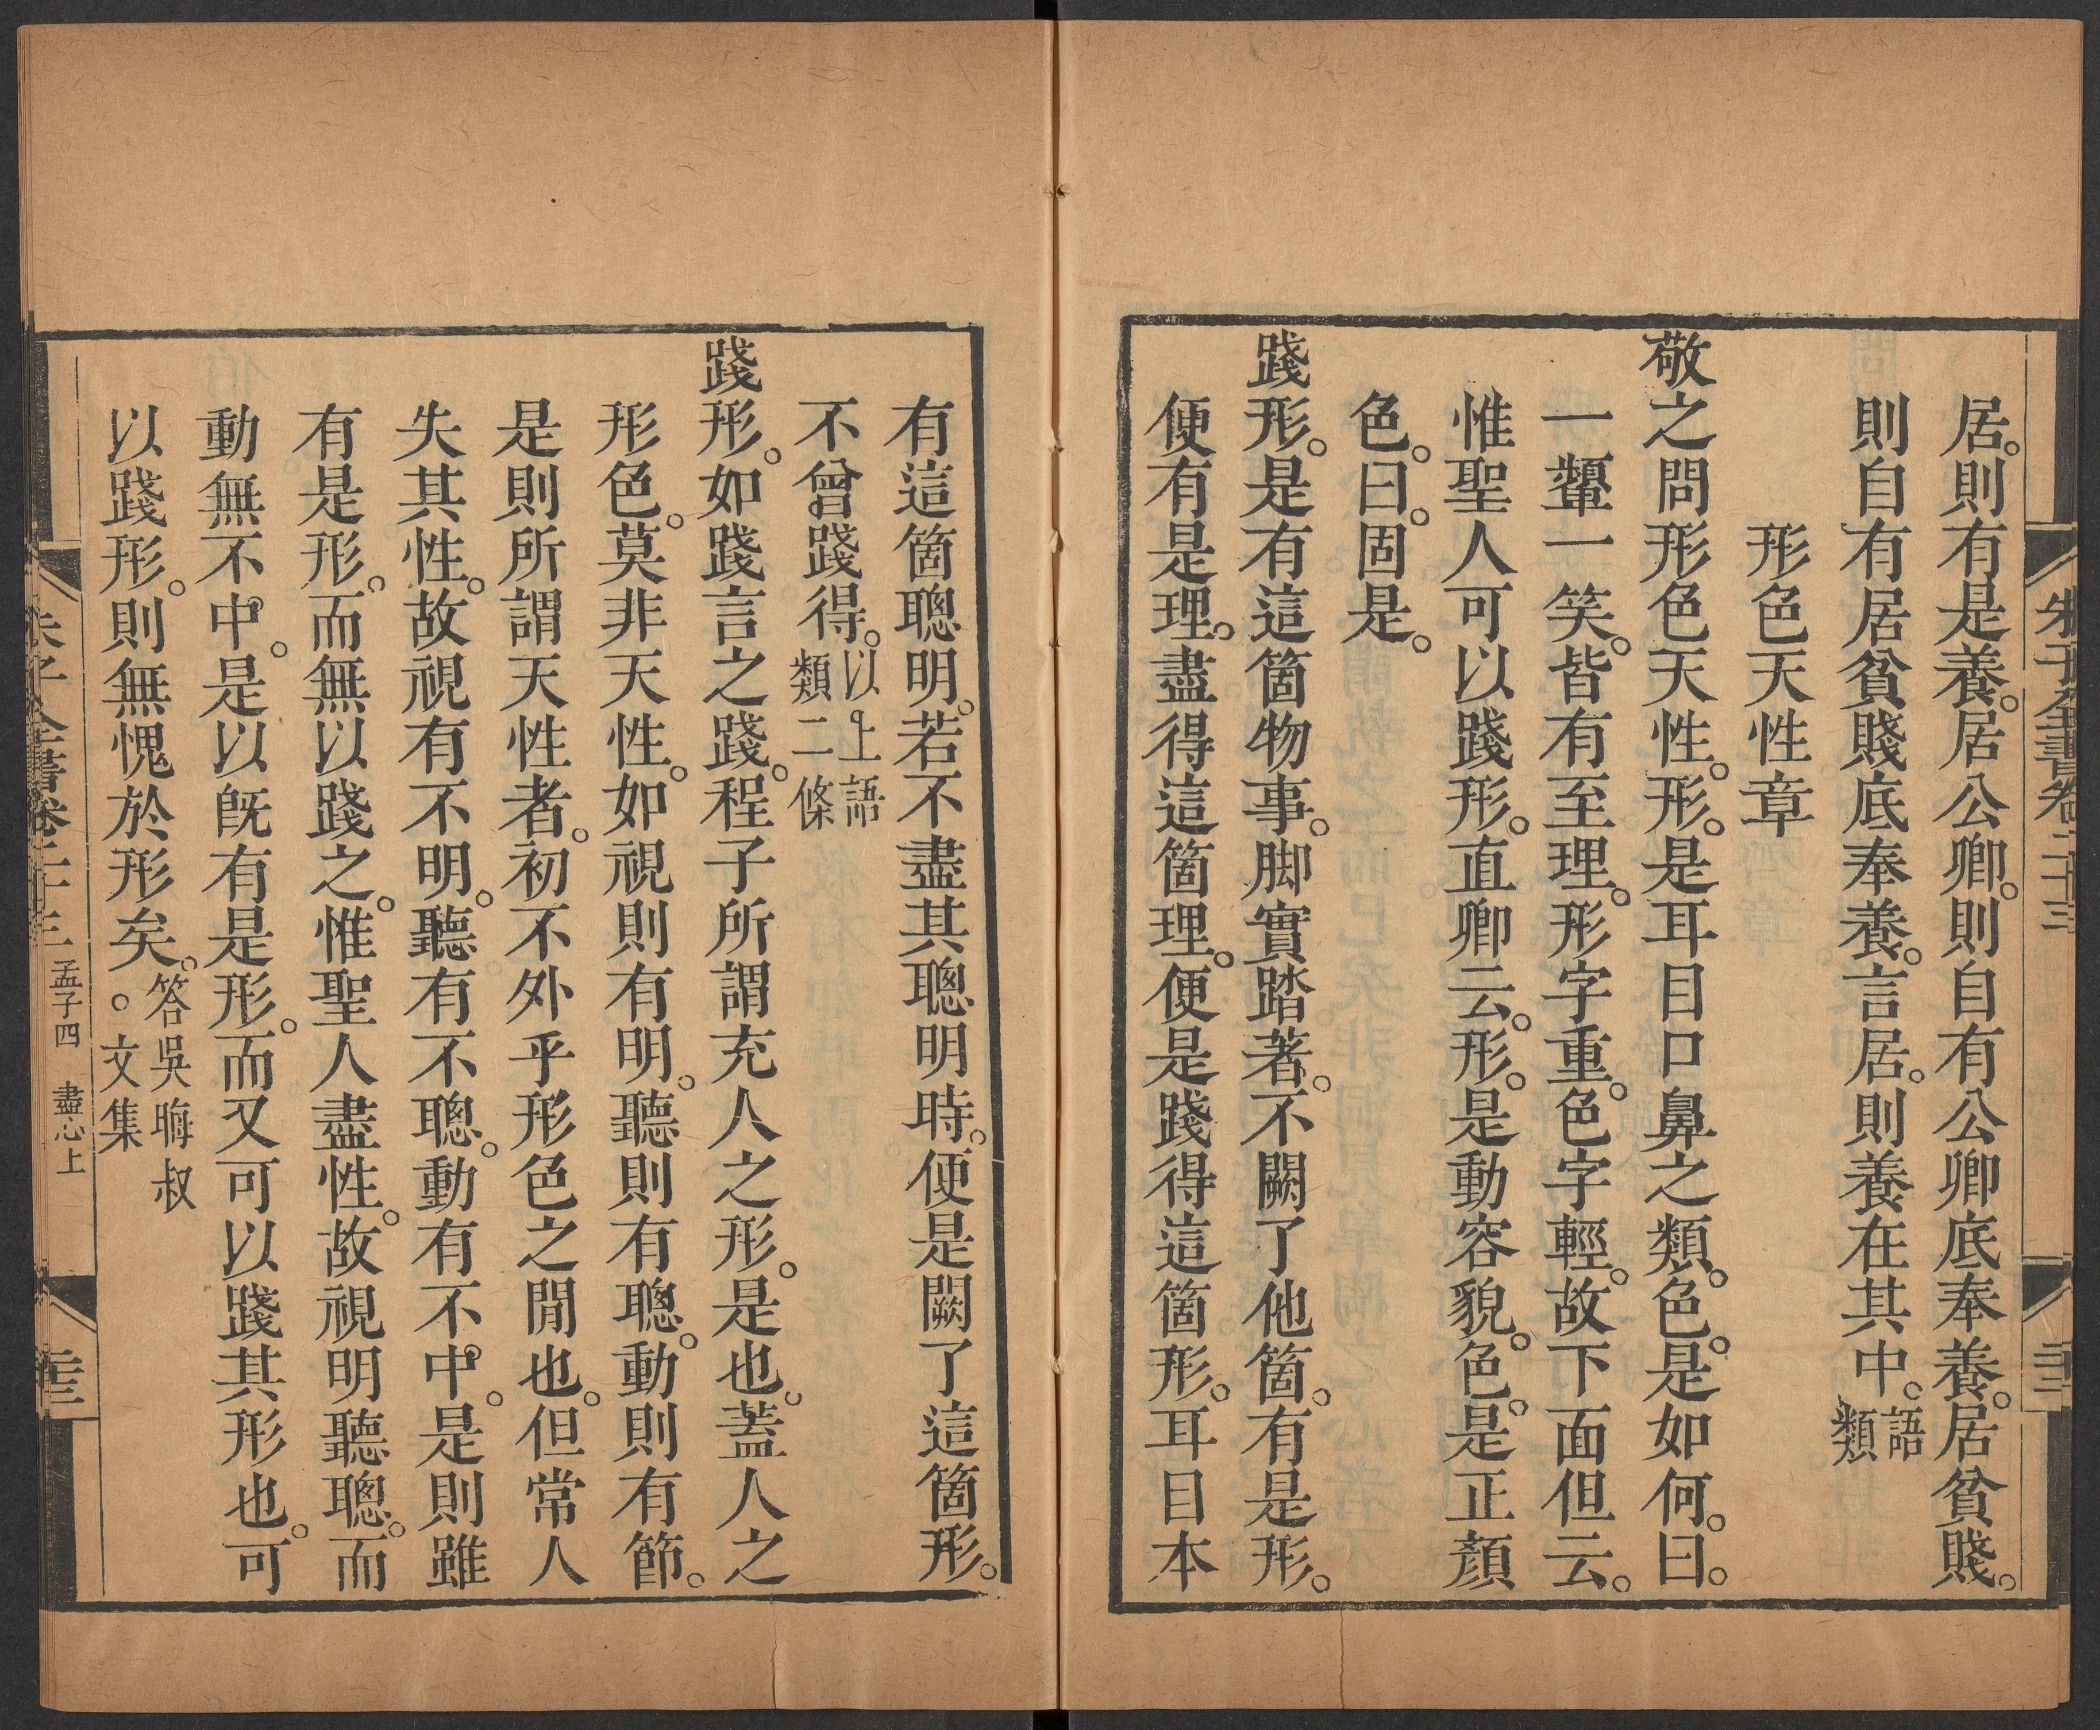 居。則有是養。居公卿。則自有公卿底奉養。居貧賤。
則自有居貧賤底奉養。言居。則養在其中。語類
形色天性章
敬之問形色天性。形。是耳目口鼻之類。色。是如何。曰。
一顰一笑。皆有至理。形字重。色字輕。故下面但云。
惟聖人可以踐形。直卿云。形。是動容貌。色。是正顏
色。曰。固是。
踐形。是有這箇物事。脚實踏著。不闕了他箇。有是形。
便有是理。盡得這箇理。便是踐得這箇形。耳目本
有這箇聰明。若不盡其聰明時。便是闕了這箇形。
不曾踐得。以上語類二條
踐形。如踐言之踐。程子所謂充人之形。是也。蓋人之
形色。莫非天性。如視則有明。聽則有聰。動則有節。
是則所謂天性者。初不外乎形色之閒也。但常人
失其性。故視有不明。聽有不聰。動有不中。是則雖
有是形。而無以踐之。惟聖人盡性。故視明聽聰。而
動無不中。是以旣有是形。而又可以踐其形也。可
以踐形。則無愧於形矣。答吳晦叔。文集
朱子全書卷二十三 孟子四 盡心上